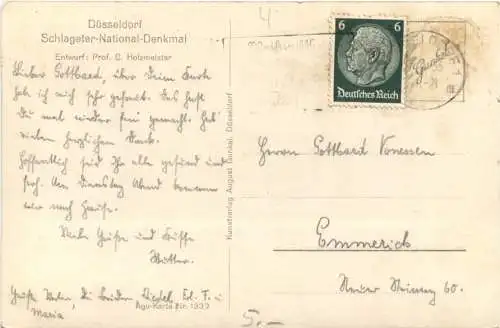 Düsseldorf
Schlageter-National-Denkmal
Entwurf: Prof. C. Holzmeister
Lieber Gotthard, über Deine Karte
hab ich mich sehr gefreut. Das hast
Du mal wieder fein gemacht. Hab
vielen herzlichen Dank.
Hoffentlich seid Ihr alle gesund und
froh. Am Dienstag Abend kommen
wir nach Hause.
Viele Grüsse und Küsse
Mutter.
Grüsse Vater, die beiden
Maria
Agu-Karte Nr. 1332
Kunstverlag August Gunkel, Düsseldorf
6 6
Deutsches Reich
Herrn Gotthard Vonessen
Emmerich
Steinweg 60.
5.-